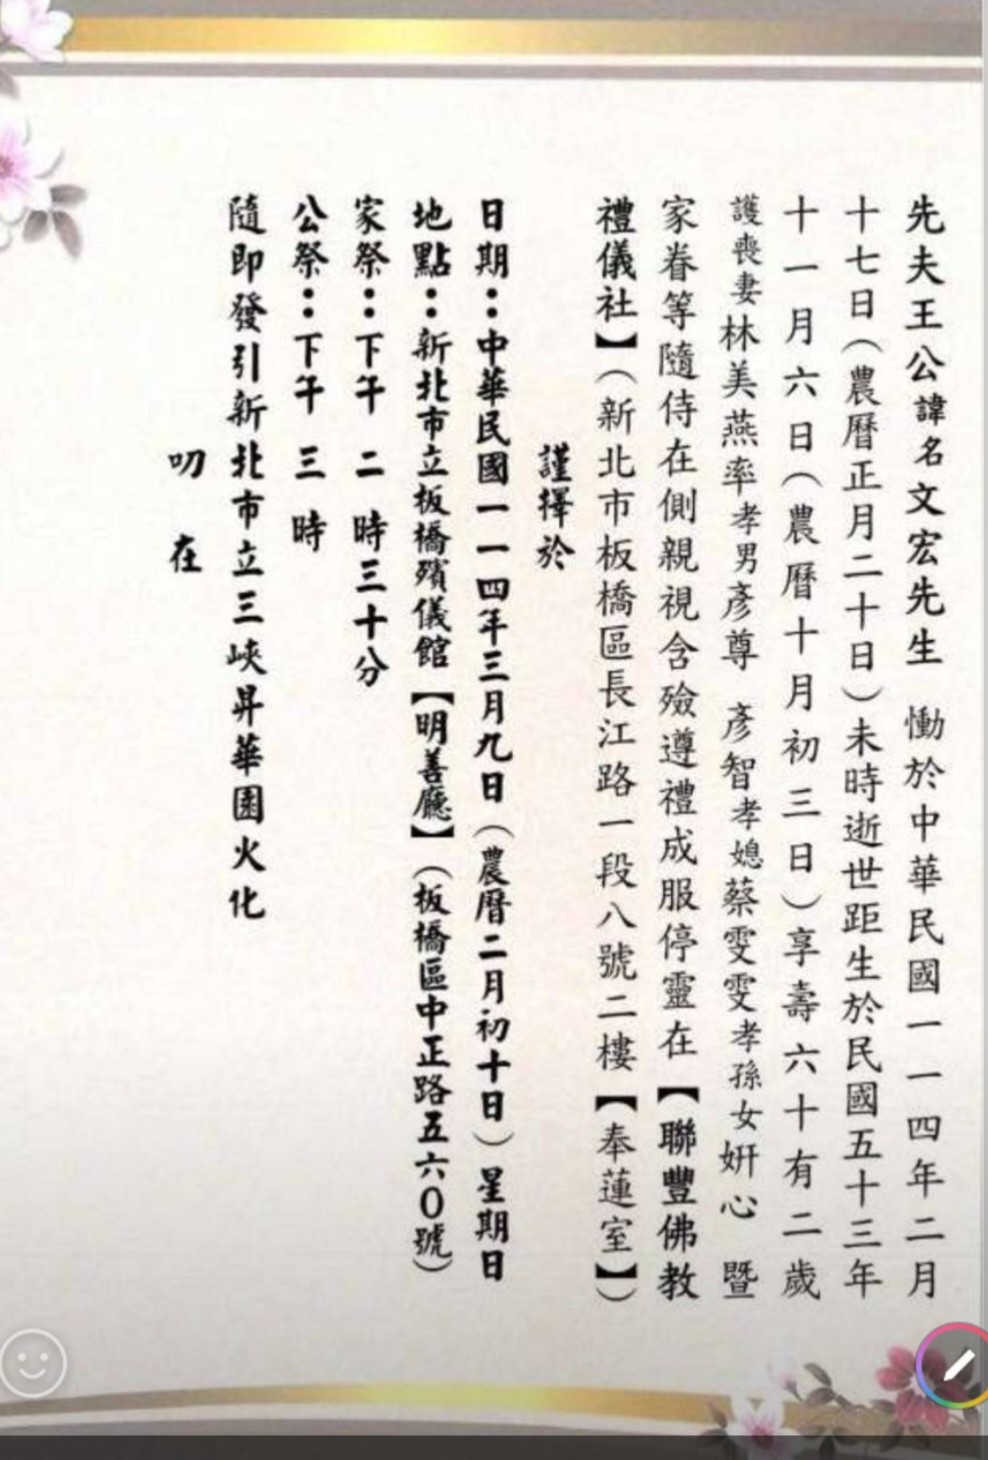 先夫王公諱名文宏先生 慟於中華民國一一四年二月
十七日(農曆正月二十日)未時逝世距生於民國五十三年
十一月六日(農曆十月初三日)享壽六十有二歲
護喪妻林美燕率孝男彥尊 彥智孝媳蔡雯雯孝孫女妍心 暨
家眷等隨侍在側親視含殮遵禮成服停靈在【聯豐佛教
禮儀社】(新北市板橋區長江路一段八號二樓【奉蓮室】)
謹擇於
日期:中華民國一一四年三月九日(農曆二月初十日)星期日
地點:新北市立板橋殯儀館【明善廳】(板橋區中正路五六0號)
家祭:下午 二 時三十分
公祭:下午 三 時
隨即發引新北市立三峽昇華園火化
叨 在